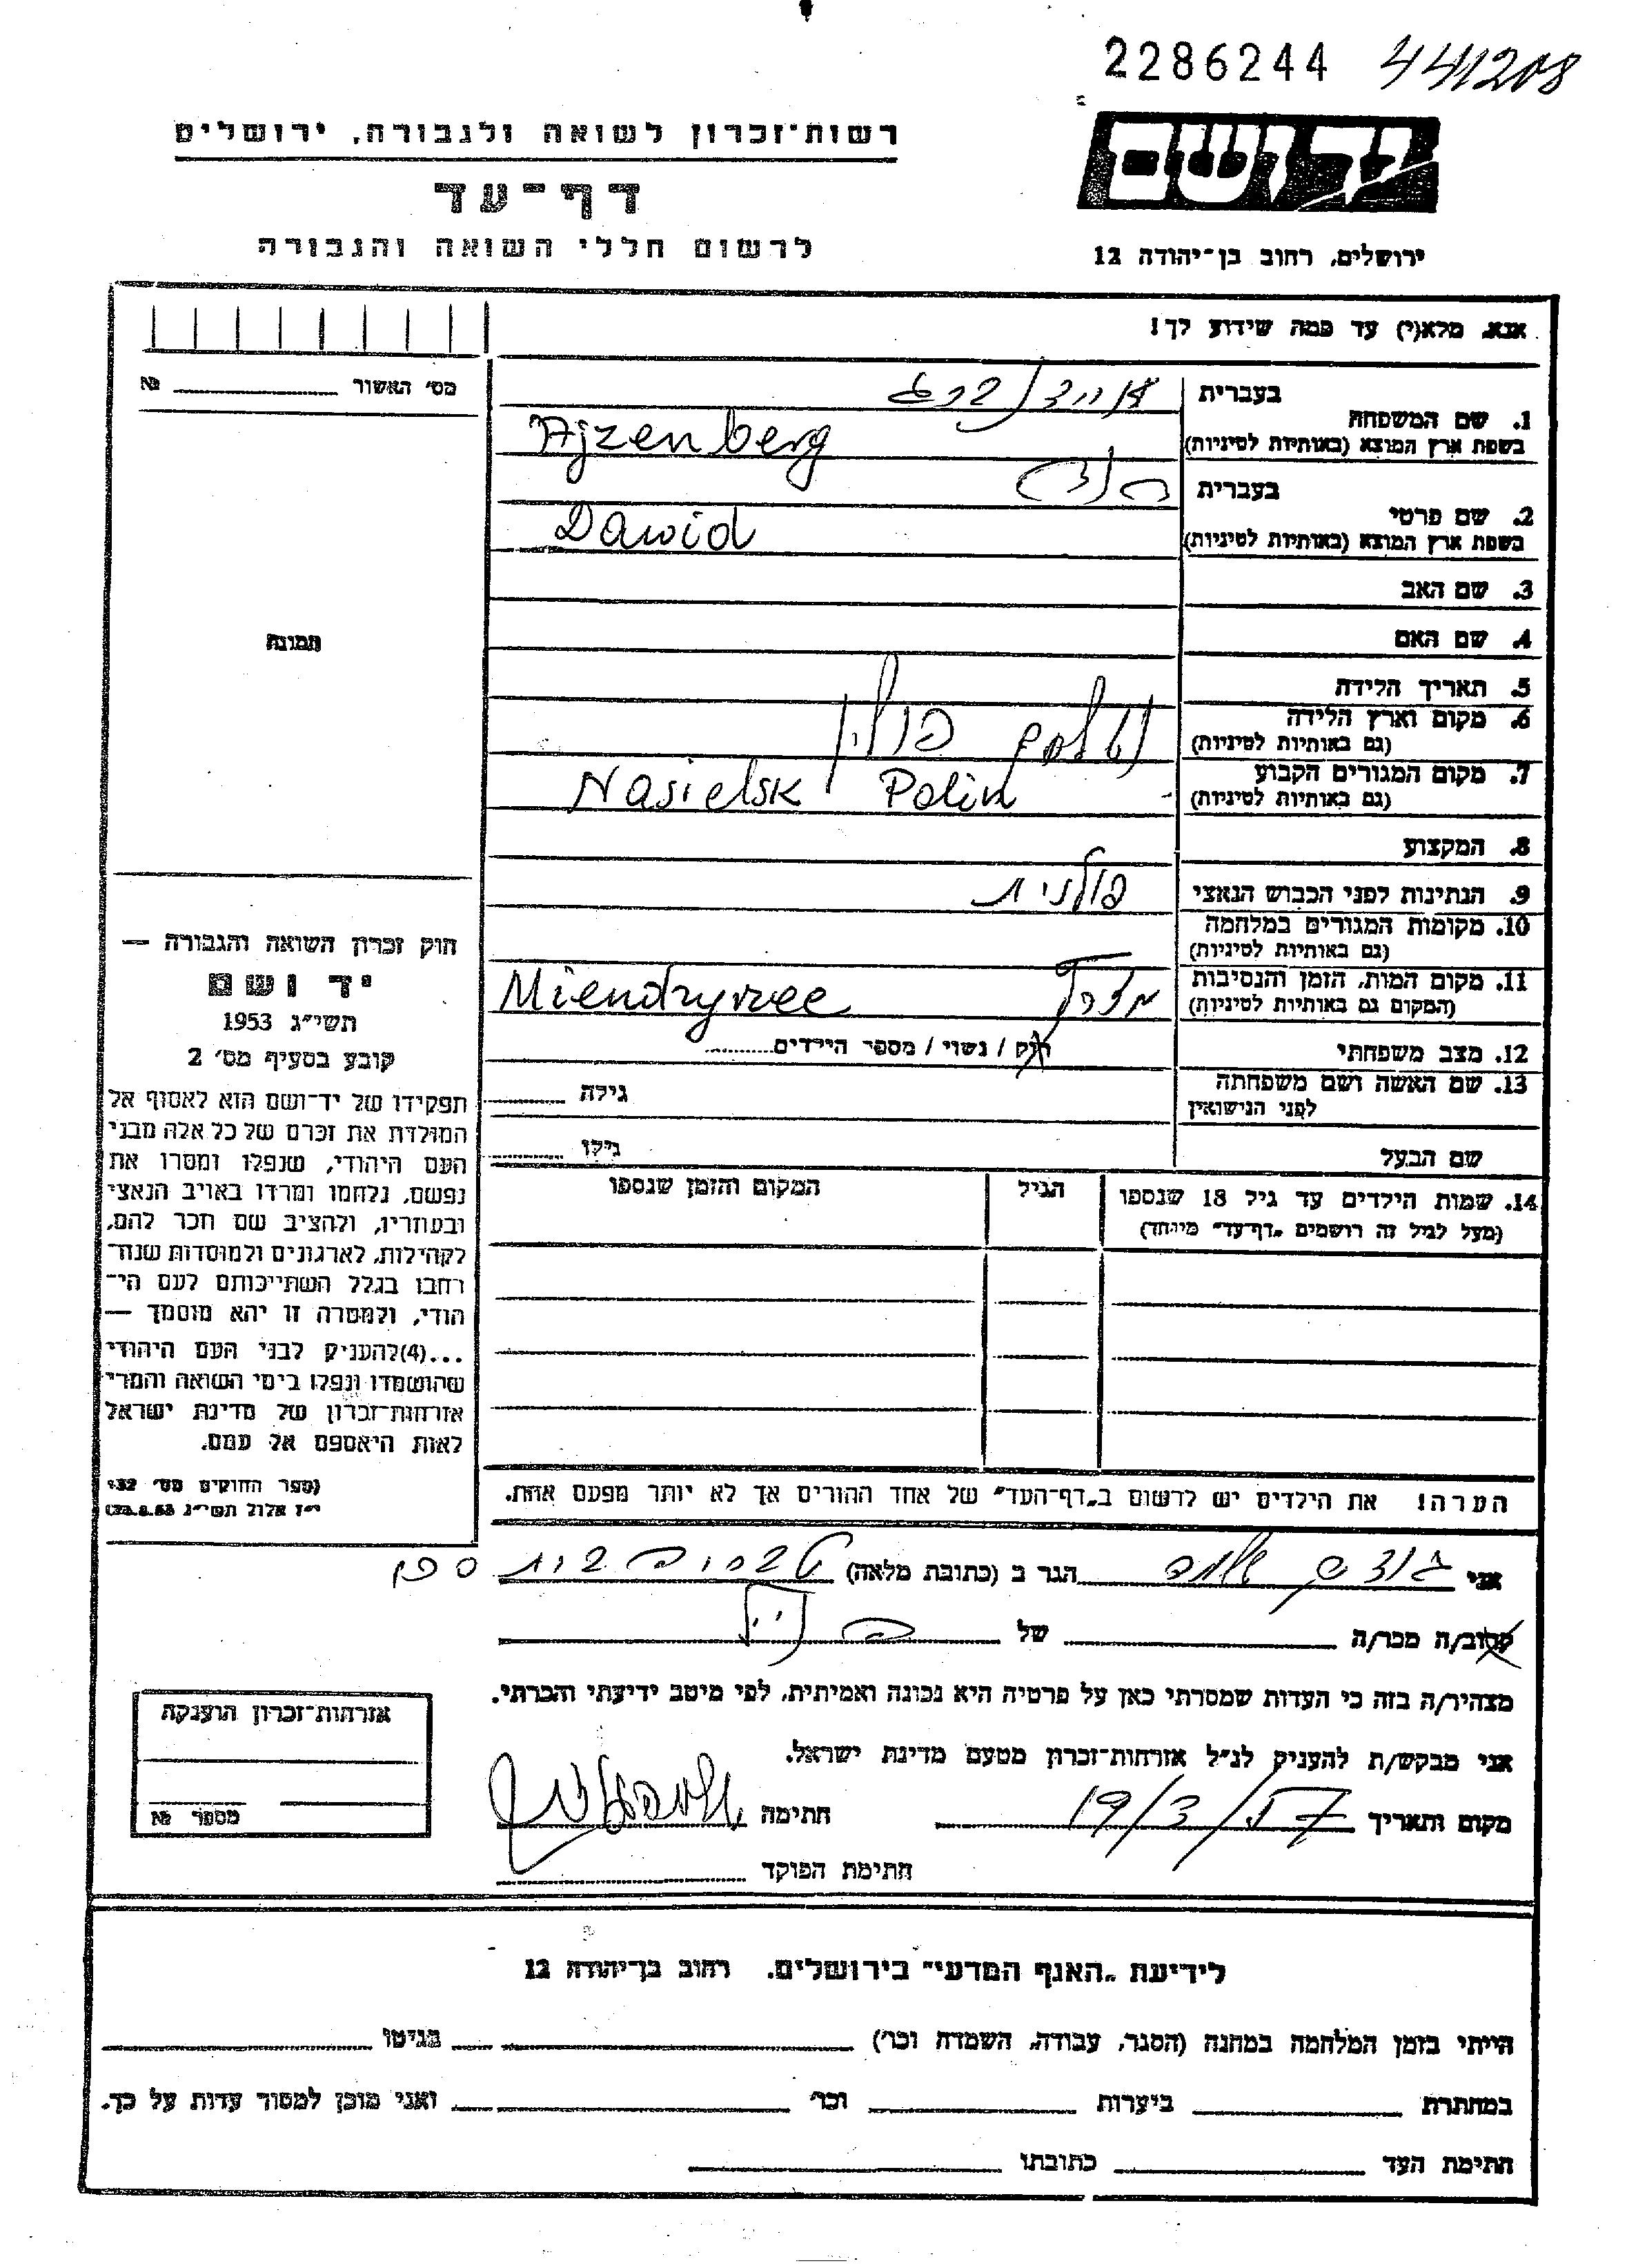 2286244 441208
יד ושם
רשות־זכרון לשואה ולגבורה, ירושלים
דף־עד
לרשום חללי השואה והגבורה
ירושלים, רחוב בן־יהודה 12
אנא, מלא(י) עד כמה שידוע לך!
מס' האשור № 
בעברית אייזנברג
1. שם המשפחה
בשפת ארץ המוצא (באותיות לטיניות) Ajzenberg
בעברית
2. שם פרטי
בשפת ארץ המוצא (באותיות לטיניות) Dawid
3. שם האב
4. שם האם
תמונה
5. תאריך הלידה
6. מקום וארץ הלידה פולין
(גם באותיות לטיניות)
7. מקום המגורים הקבוע Nasielsk Polin
(גם באותיות לטיניות)
8. המקצוע
9. הנתינות לפני הכבוש הנאצי פולנית
10. מקומות המגורים במלחמה
(גם באותיות לטיניות)
11. מקום המות, הזמן והנסיבות
(המקום גם באותיות לטיניות) Miendryzee
12. מצב משפחתי רוק / נשוי / מספר הילדים
13. שם האשה ושם משפחתה גילה
לפני הנישואין
שם הבעל גילו
14. שמות הילדים עד גיל 18 שנספו הגיל המקום והזמן שנספו
(מעל לגיל זה רושמים "דף־עד" מיוחד)
חוק זכרון השואה והגבורה —
יד ושם
תשי"ג 1953
קובע בסעיף מס' 2
תפקידו של יד־ושם הוא לאסוף אל
המולדת את זכרם של כל אלה מבני
העם היהודי, שנפלו ומסרו את
נפשם, נלחמו ומרדו באויב הנאצי
ובעוזריו, ולהציב שם וזכר להם,
לקהילות, לארגונים ולמוסדות שנה־
רחבו בגלל השתייכותם לעם הי־
הודי, ולמטרה זו יהא מוסמך —
...(4)להעניק לבני העם היהודי
שהושמדו ונפלו בימי השואה והמרי
אזרחות־זכרון של מדינת ישראל
לאות היאספם אל עמם.
(ספר החוקים מס' 132
י"ז אלול תשי"ג 28.8.53)
הערה! את הילדים יש לרשום ב"דף־העד" של אחד ההורים אך לא יותר מפעם אחת.
אני הגר ב (כתובת מלאה)
קרוב/ה מכר/ה של
מצהיר/ה בזה כי העדות שמסרתי כאן על פרטיה היא נכונה ואמיתית, לפי מיטב ידיעתי והכרתי.
אני מבקש/ת להעניק לנ"ל אזרחות־זכרון מטעם מדינת ישראל.
מקום ותאריך חתימה
חתימת הפוקד
אזרחות־זכרון הוענקה
מספר №
לידיעת "האגף המדעי" בירושלים. רחוב בן־יהודה 12
הייתי בזמן המלחמה במחנה (הסגר, עבודה, השמדה וכו') בגיטו
במחתרת ביערות וכו' ואני מוכן למסור עדות על כך.
חתימת העד כתובתו